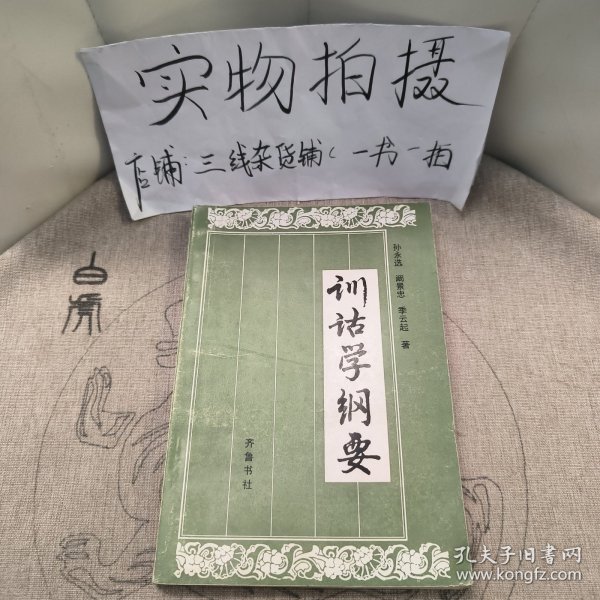 实物拍摄
店铺:三线杂货铺(一书一拍
白虎
孙永选 阚景忠 季云起 著
训诂学纲要
齐鲁书社
孔夫子旧书网
www.kongfz.com